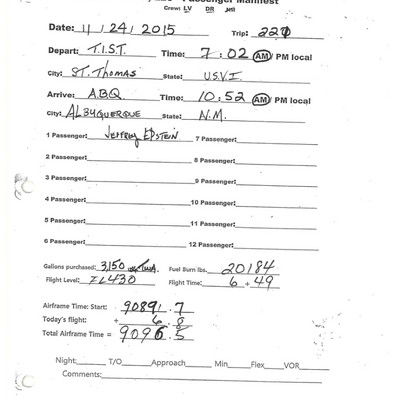 Passenger Manifest
Crew: LV DR
Date: 11/24/2015 Trip: 220
Depart: T.I.S.T. Time: 7:02 AM / PM local
City: ST. THOMAS State: U.S.V.I.
Arrive: A.B.Q. Time: 10:52 AM / PM local
City: ALBUQUERQUE State: N.M.
1 Passenger: Jeffrey EPSTEIN 7 Passenger:
2 Passenger: 8 Passenger:
3 Passenger: 9 Passenger:
4 Passenger: 10 Passenger:
5 Passenger: 11 Passenger:
6 Passenger: 12 Passenger:
Gallons purchased: 3,150 Fuel Burn lbs. 20184
Flight Level: FL430 Flight Time: 6 + 49
Airframe Time: Start: 90891.7
Today's flight: + 6.8
Total Airframe Time = 5
Night: T/O Approach Min Flex VOR
Comments: